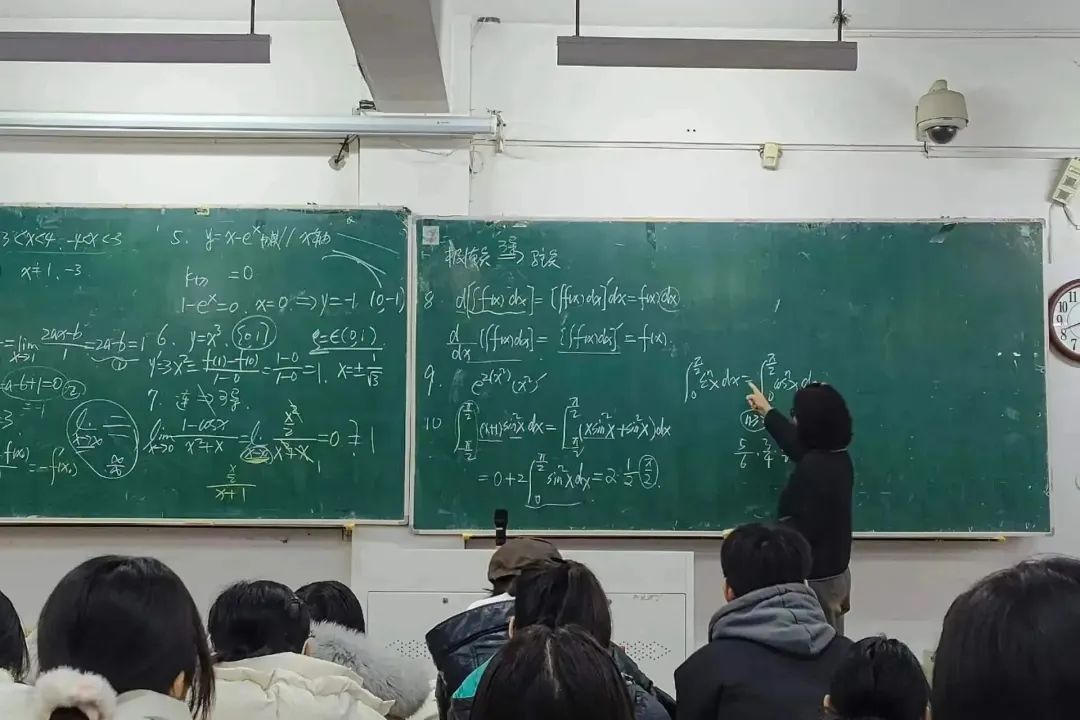 3<x<4, -4<x<-3
x≠1, -3.
= lim x→1 (2ax-b)/1 = 2a-b=1 ②
a-b+1=0 ②
= -1
lim x→∞ = ∞/∞
= f'(x₀)
5. y=x-e^x 切线// x轴
k(x) =0
1-e^x=0. x=0 ⇒ y=-1. (0,-1)
6. y=x³ [0,1] ∈(0,1)
y'=3x²= (f(1)-f(0))/(1-0) = (1-0)/(1-0) =1. x=±1/√3
7. 连 ⇏ 导.
lim x→0 (1-cosx)/(x²+x) = lim x→0 (x²/2)/(x²+x) =0 ≠ 1
(x/2)/(x+1)
8 d[∫f(x)dx]= [∫f(x)dx]'dx=f(x)dx
d/dx [∫f(x)dx]= [∫f(x)dx]'=f(x).
9 e^{2(x²)}(x²)'
10 ∫_{-π/2}^{π/2} (x+1)sin²x dx = ∫_{-π/2}^{π/2} (xsin²x+sin²x)dx
=0+2∫_0^{π/2} sin²x dx=2·1/2·π/2.
∫_0^{π/2} sinⁿx dx = ∫_0^{π/2} cosⁿx d
5/6 · 3/4
11
12
10
9
8